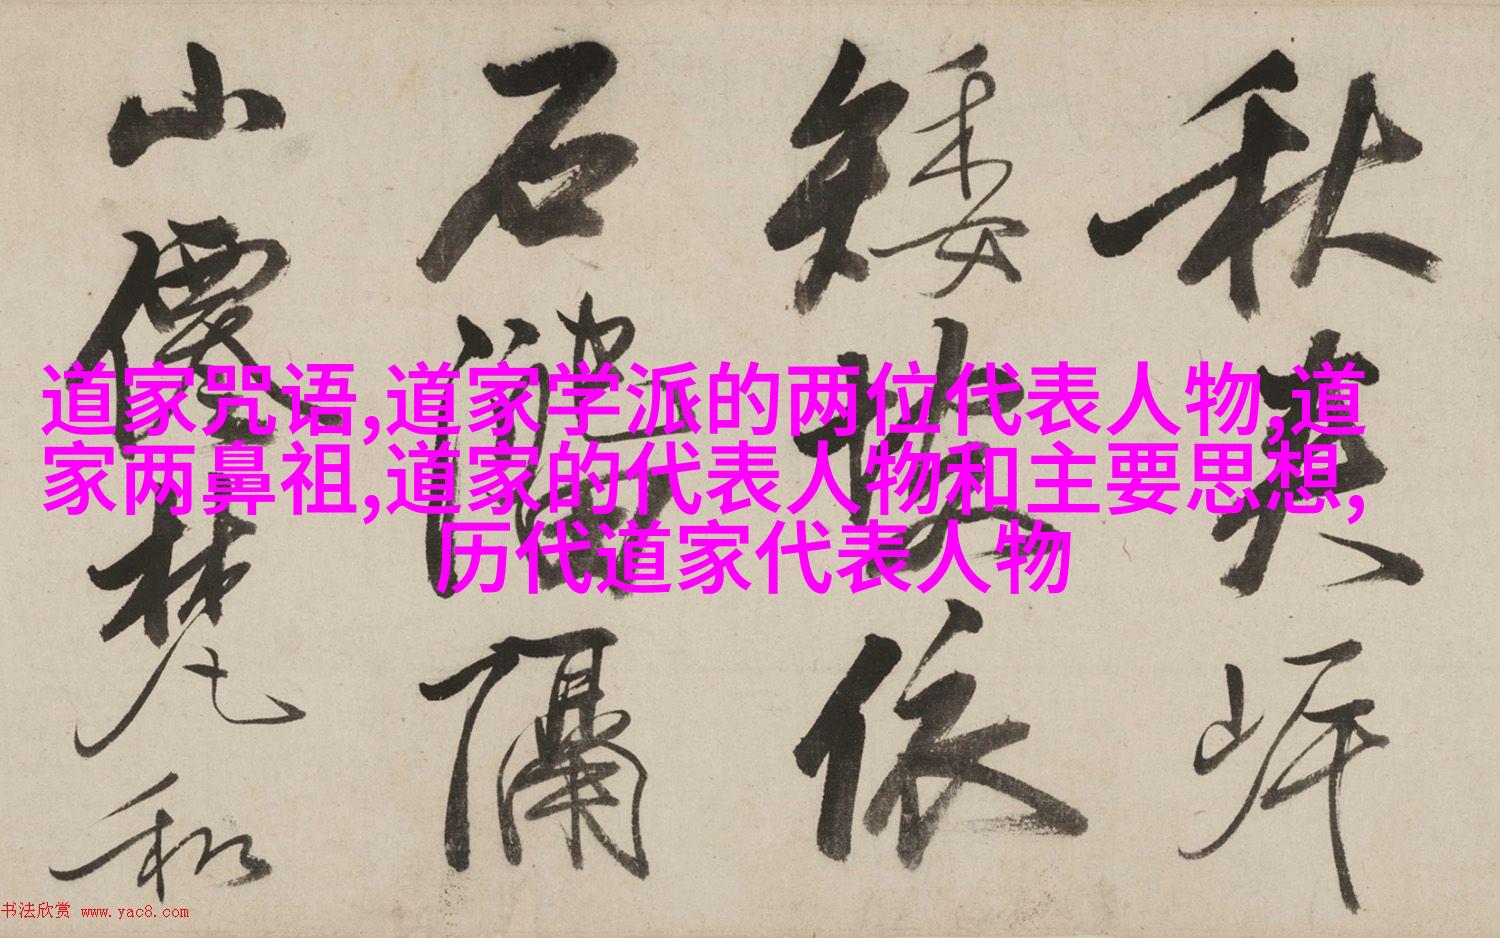 道家咒语,道家学派的两位代表人物,道
家两鼻祖,道家的代表人物和主要思想,
历代道家代表人物
秋
岸
矮
坡依
石
隔
山
僊梵
和
书法欣赏 www.yac8.com